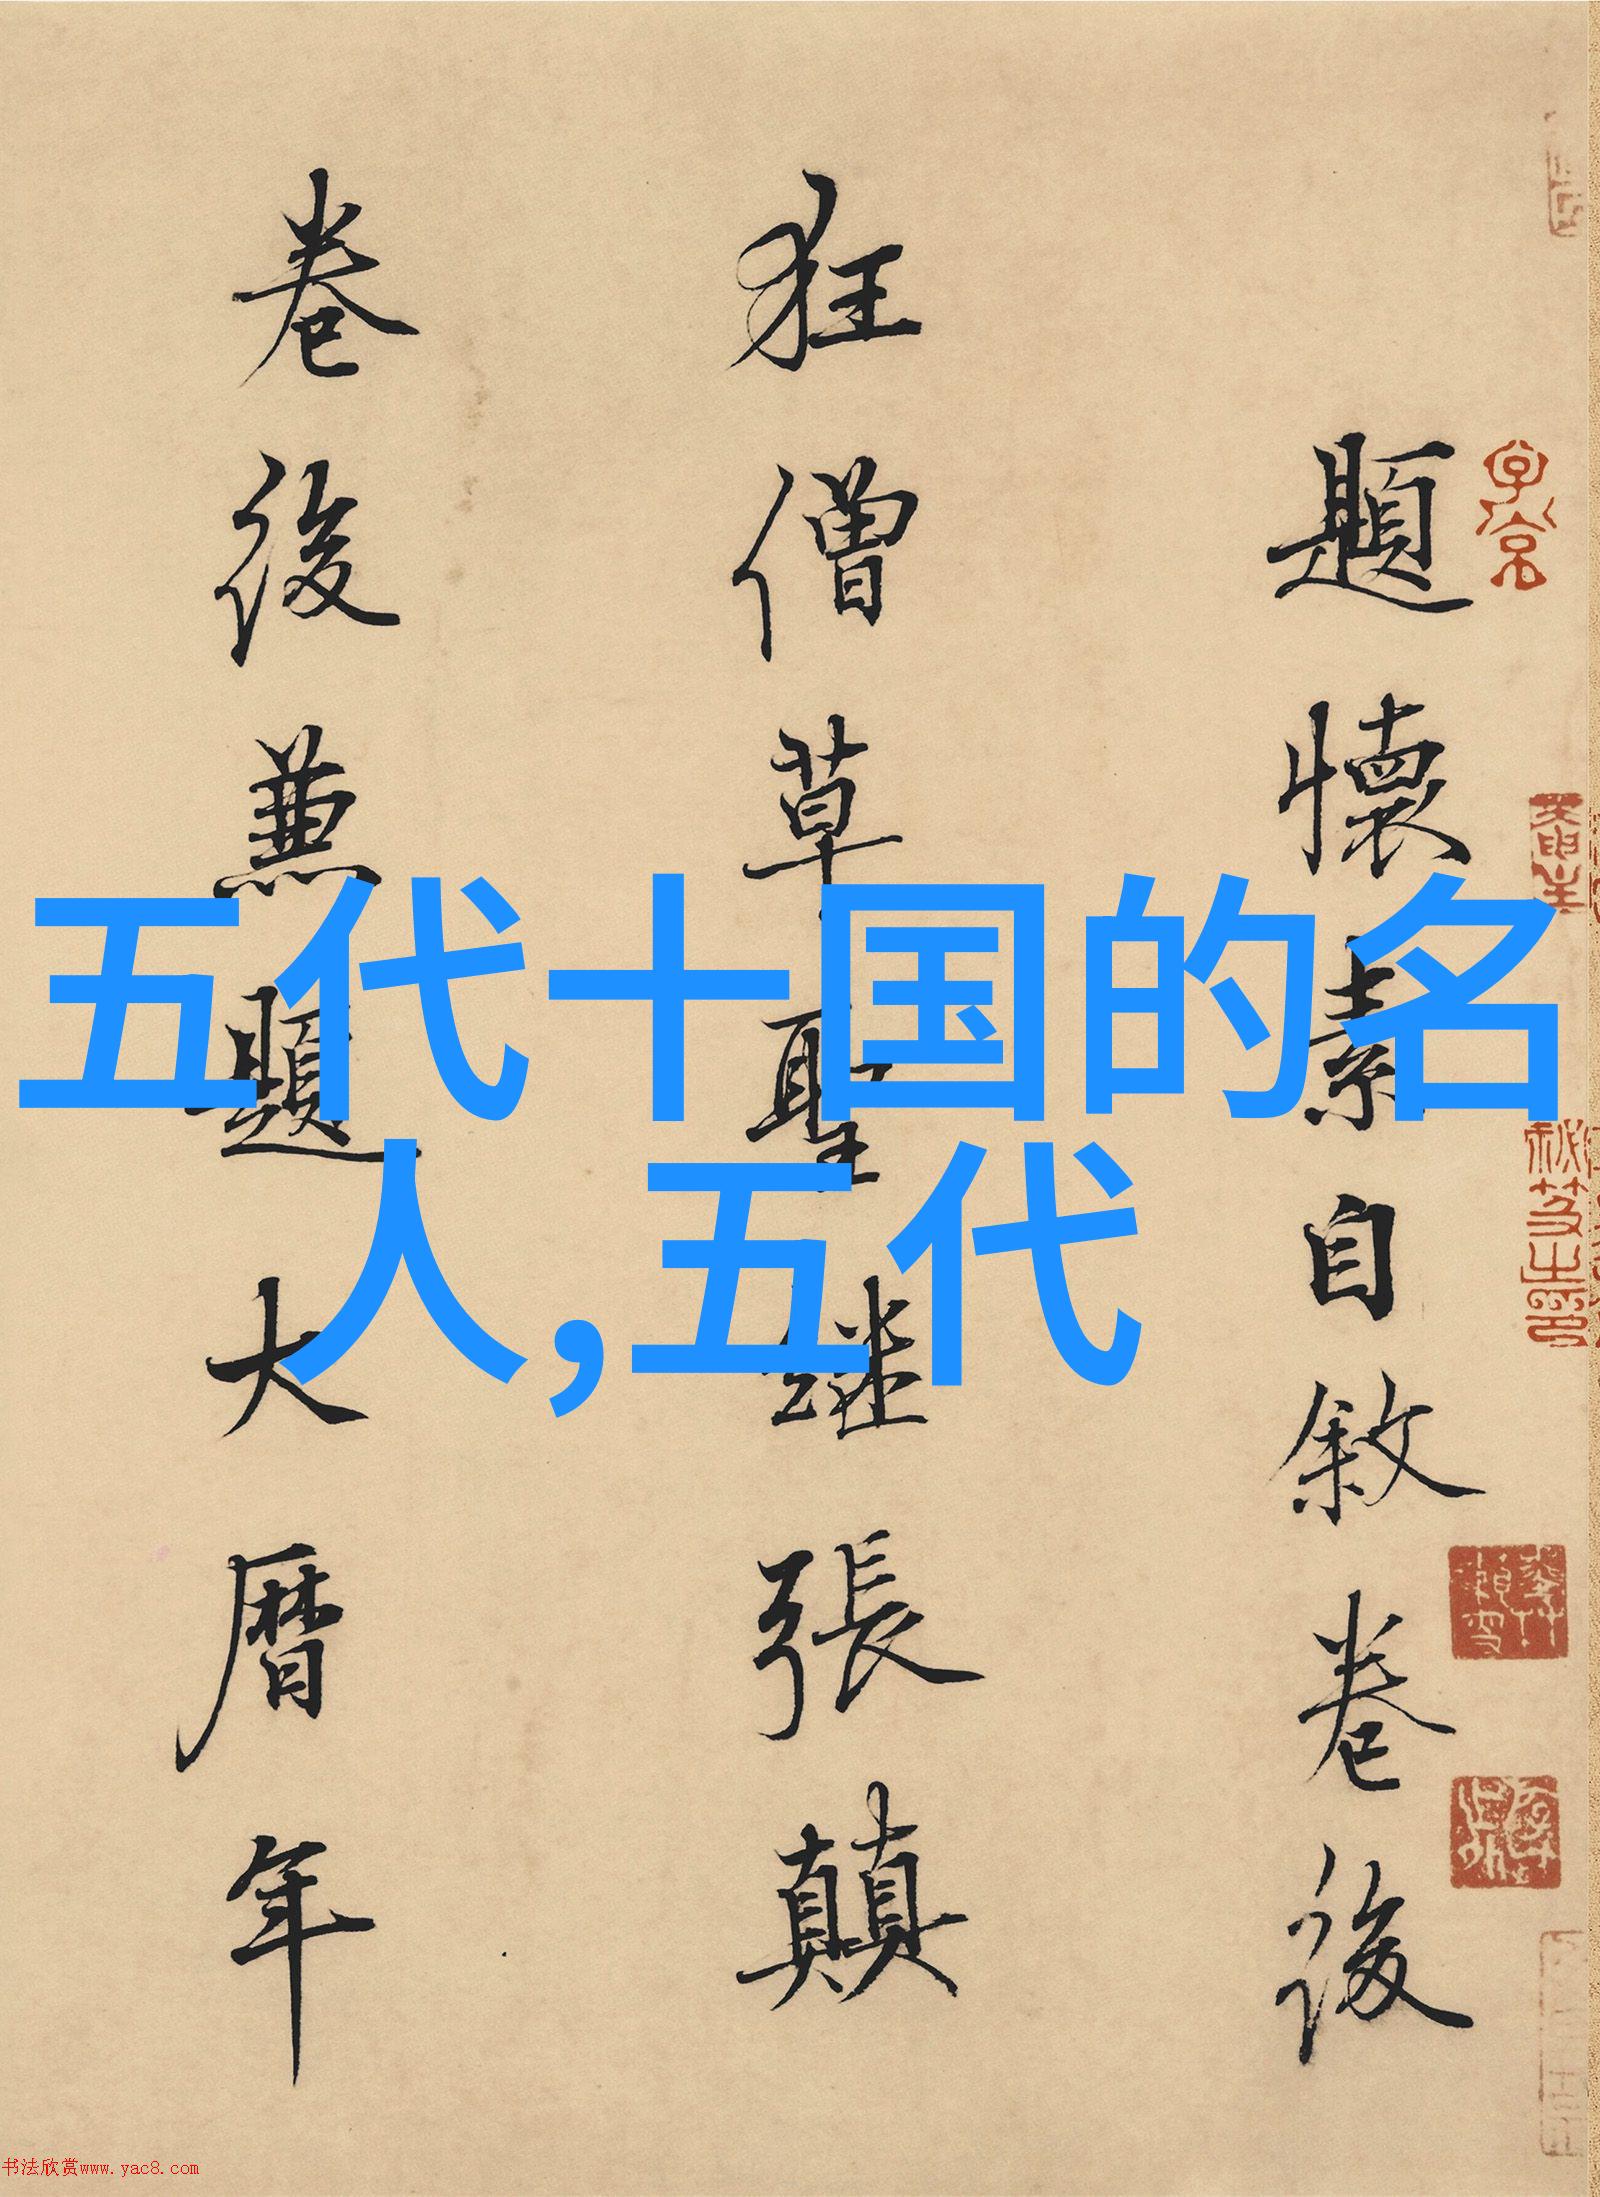 題懷素自敘卷後
狂僧草聖繼張顛
卷後兼題大曆年
五代十国的名
人,五代
书法欣赏www.yac8.com